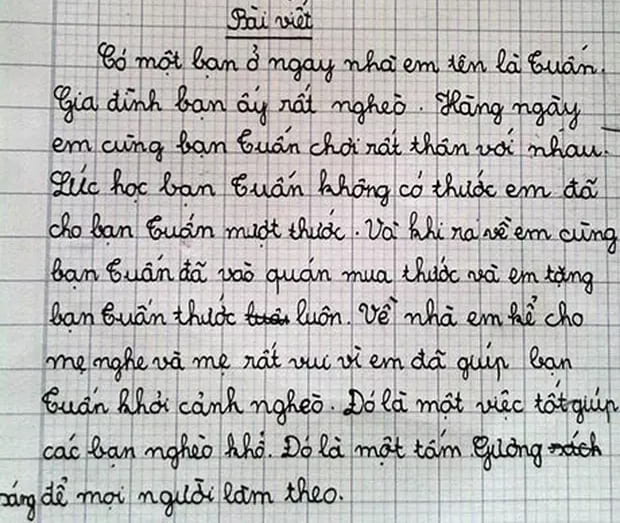 Bài viết
Có một bạn ở ngay nhà em tên là Tuấn.
Gia đình bạn ấy rất nghèo. Hàng ngày
em cùng bạn Tuấn chơi rất thân với nhau.
Lúc học bạn Tuấn không có thước em đã
cho bạn Tuấn mượt thước. Và khi ra về em cùng
bạn Tuấn đã vào quán mua thước và em tặng
bạn Tuấn thước luôn. Về nhà em kể cho
mẹ nghe và mẹ rất vui vì em đã giúp bạn
Tuấn khỏi cảnh nghèo. Đó là một việc tốt giúp
các bạn nghèo khổ. Đó là một tấm gương sách
sáng để mọi người làm theo.